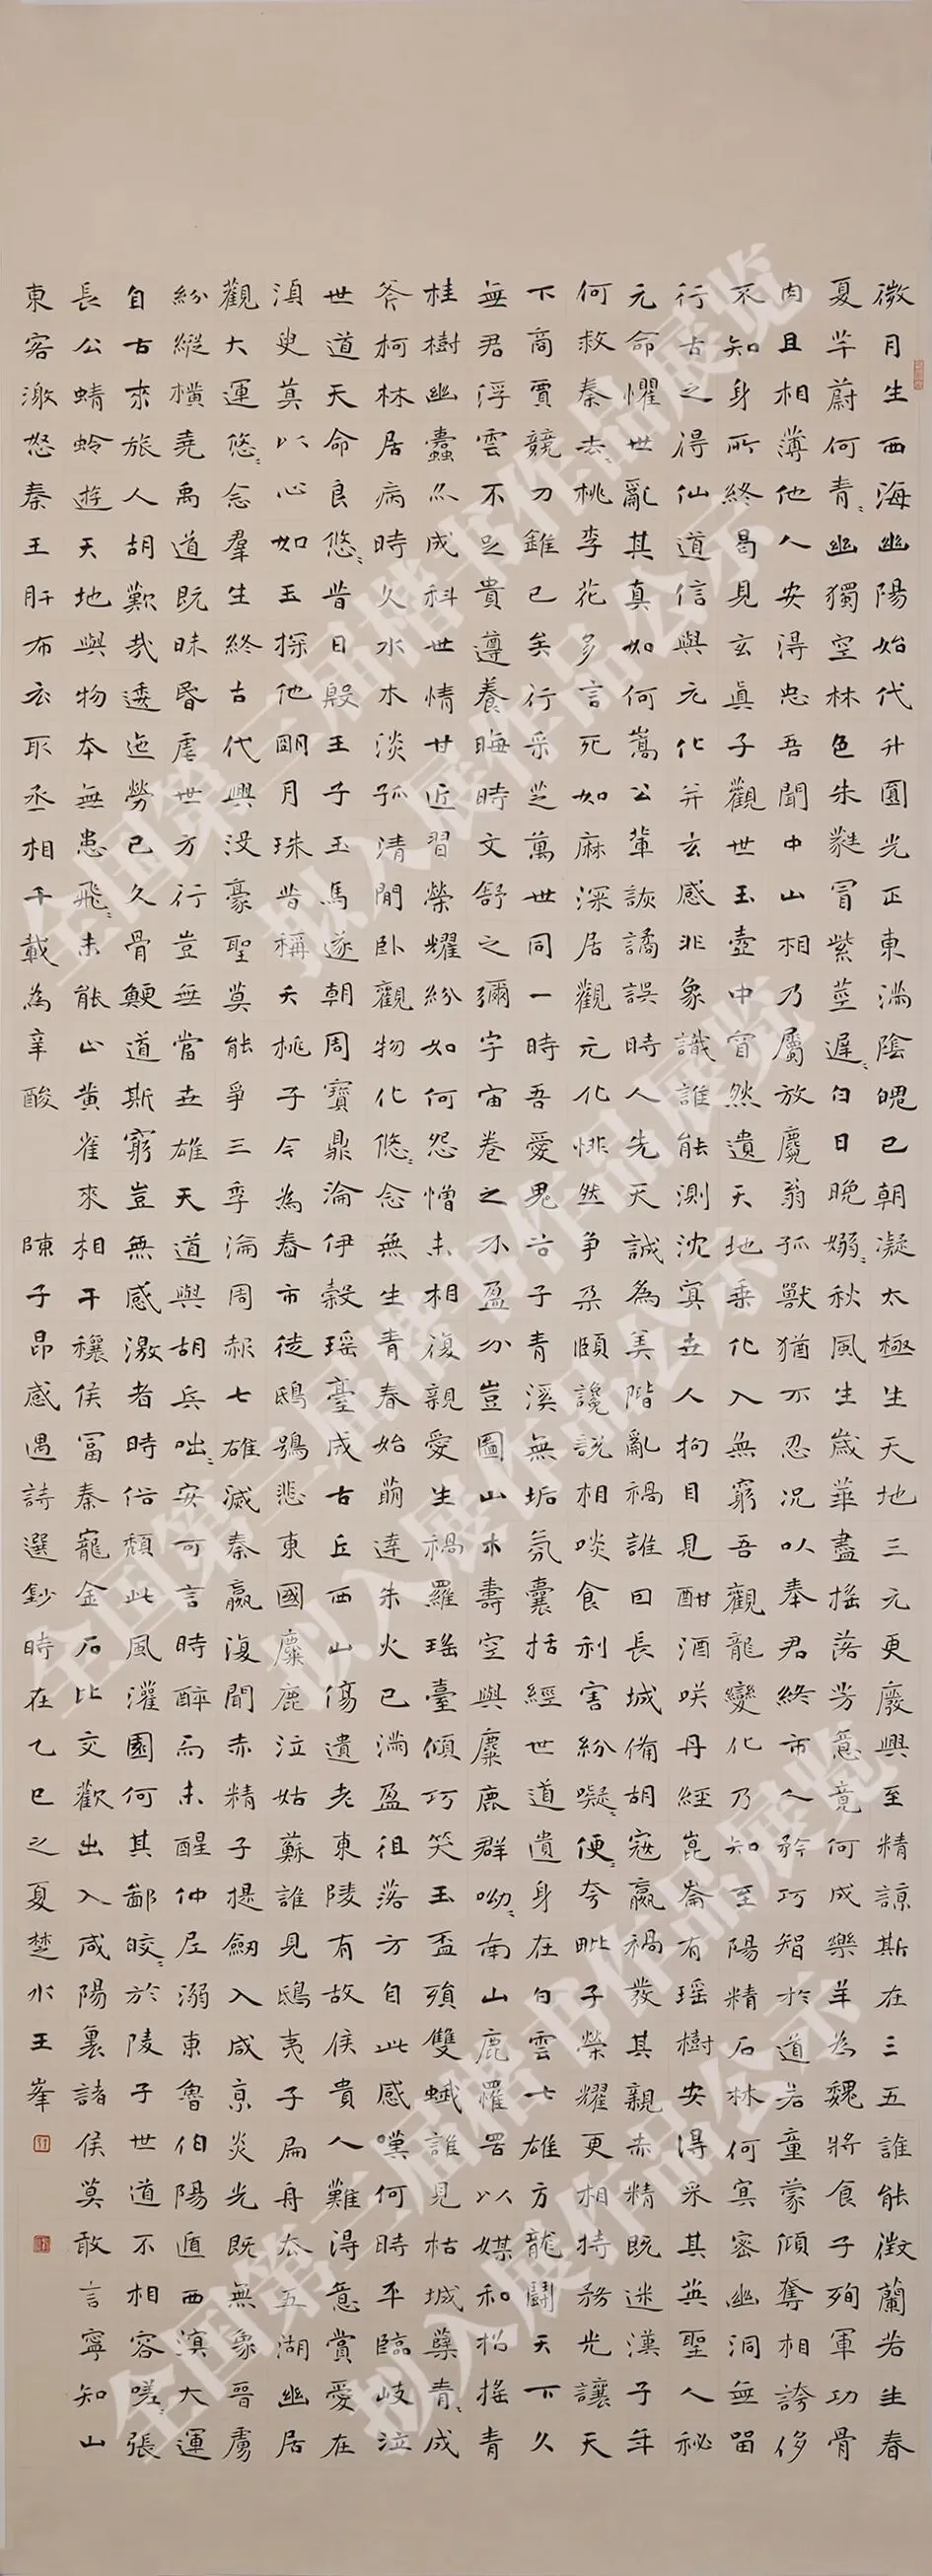 微月生西海幽陽始代升圓光正東滿陰魄已朝凝太極生天地三元更廢興至精諒斯在三五誰能徵蘭若生春
夏芊蔚何青〻幽獨空林色朱蕤冒紫莖遲〻白日晚嫋〻秋風生歲華盡搖落芳意竟何成樂羊為魏將食子殉軍功骨
肉且相薄他人安得忠吾聞中山相乃屬放麑翁孤獸猶不忍況以奉君終市人矜巧智於道若童蒙傾奪相誇侈
不知身所終曷見玄真子觀世玉壺中窅然遺天地乘化入無窮吾觀龍變化乃知至陽精石林何冥密幽洞無留
行古之得仙道信與元化并玄感非象識誰能測沈冥世人拘目見酣酒笑丹經崑崙有瑤樹安得采其英聖人秘
元命懼世亂其真如何嵩公輩詼譎誤時人先天誠為美階亂禍誰因長城備胡寇嬴禍發其親赤精既迷漢子年
何救秦去〻桃李花多言死如麻深居觀元化悱然争朵頤讒說相啖食利害紛㘈〻便〻夸毗子榮耀更相持務光讓天
下商賈競刀錐已矣行采芝萬世同一時吾愛鬼谷子青溪無垢氛囊括經世道遺身在白雲七雄方龍鬭天下久
無君浮雲不足貴遵養晦時文舒之彌宇宙卷之不盈分豈圖山木壽空與麋鹿群呦〻南山鹿罹罟以媒和招搖青
桂樹幽蠹亦成科世情甘近習榮耀紛如何怨憎未相復親愛生禍羅瑤臺傾巧笑玉盃殞雙蛾誰見枯城蘖青〻成
斧柯林居病時久水木淡孤清閒臥觀物化悠〻念無生青春始萌達朱火已滿盈徂落方自此感嘆何時平臨岐泣
世道天命良悠〻昔日殷王子玉馬遂朝周寶鼎淪伊穀瑤臺成古丘西山傷遺老東陵有故侯貴人難得意賞愛在
須臾莫以心如玉探他明月珠昔稱夭桃子今為舂市徒鴟鴞悲東國麋鹿泣姑蘇誰見鴟夷子扁舟去五湖幽居
觀大運悠〻念羣生終古代興没豪聖莫能爭三季淪周赧七雄滅秦嬴復聞赤精子提劒入咸京炎光既無象晉虜
紛縱橫堯禹道既昧昏虐世方行豈無當世雄天道與胡兵咄〻安可言時醉而未醒仲尼溺東魯伯陽遁西溟大運
自古來旅人胡歎哉逶迤勞已久骨鯁道斯窮豈無感激者時俗頹此風灌園何其鄙皎〻於陵子世道不相容嗟〻張
長公蜻蛉遊天地與物本無患飛〻未能止黃雀來相干穰侯冨秦寵金石比交歡出入咸陽裏諸侯莫敢言寧知山
東客激怒秦王肝布衣取丞相千載為辛酸 陳子昂感遇詩選鈔時在乙巳之夏楚水王峯
全国第三届楷书作品展览
拟入展作品公示
全国第三届楷书作品展览
拟入展作品公示
全国第三届楷书作品展览
拟入展作品公示